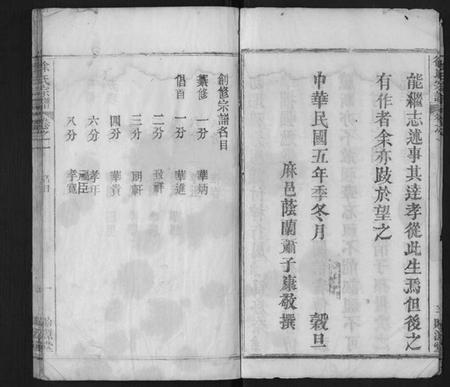 能繼志述事其達孝從此生焉但後之
有作者余亦跂於望之
中華民國五年季冬月 穀旦
麻邑蔭蘭蕭子康敬撰
徐氏宗譜
名目
創修宗譜名目
纂修 一分 華炳
倡首 一分 華進
二分 致祥
三分 朗軒
四分 華貴
六分 孝年
八分 孝寬